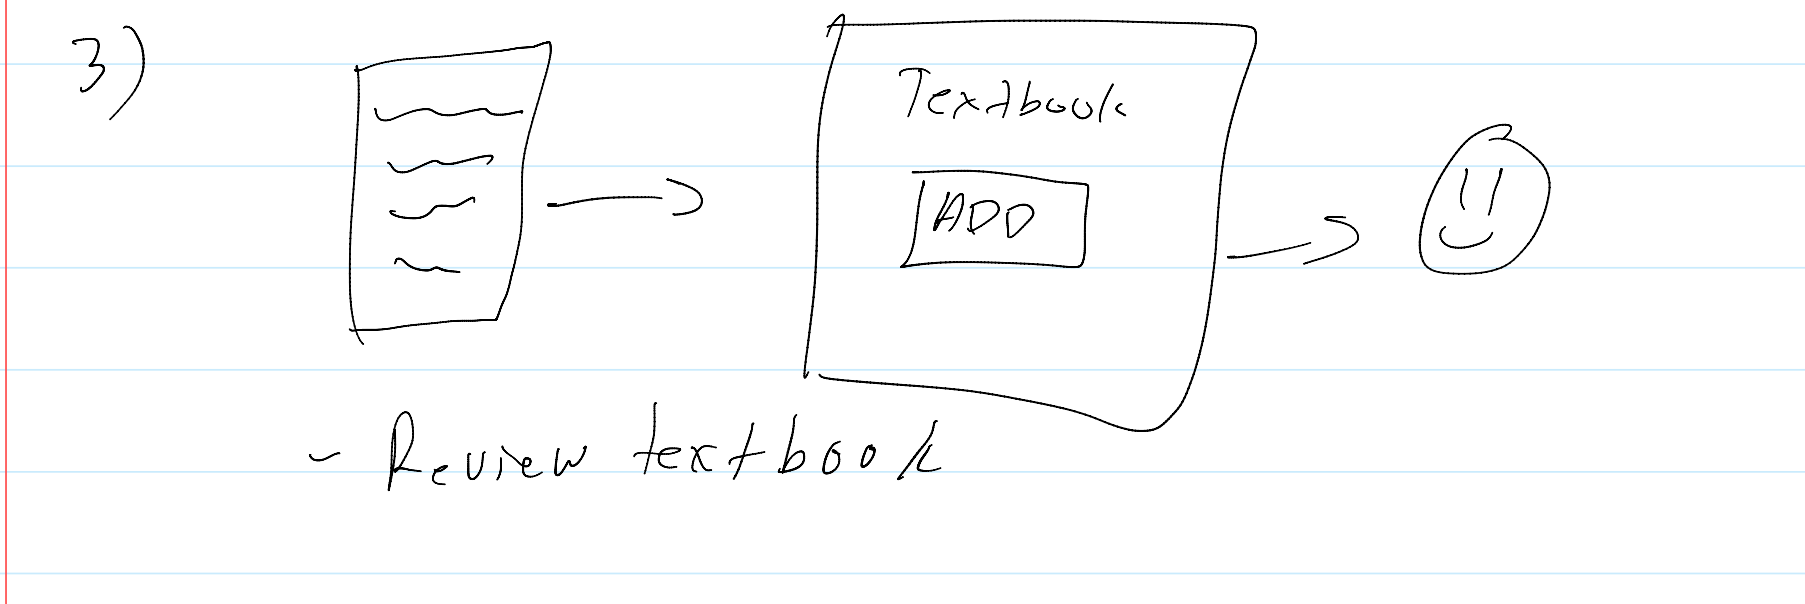 3)
Textbook
ADD
- Review textbook